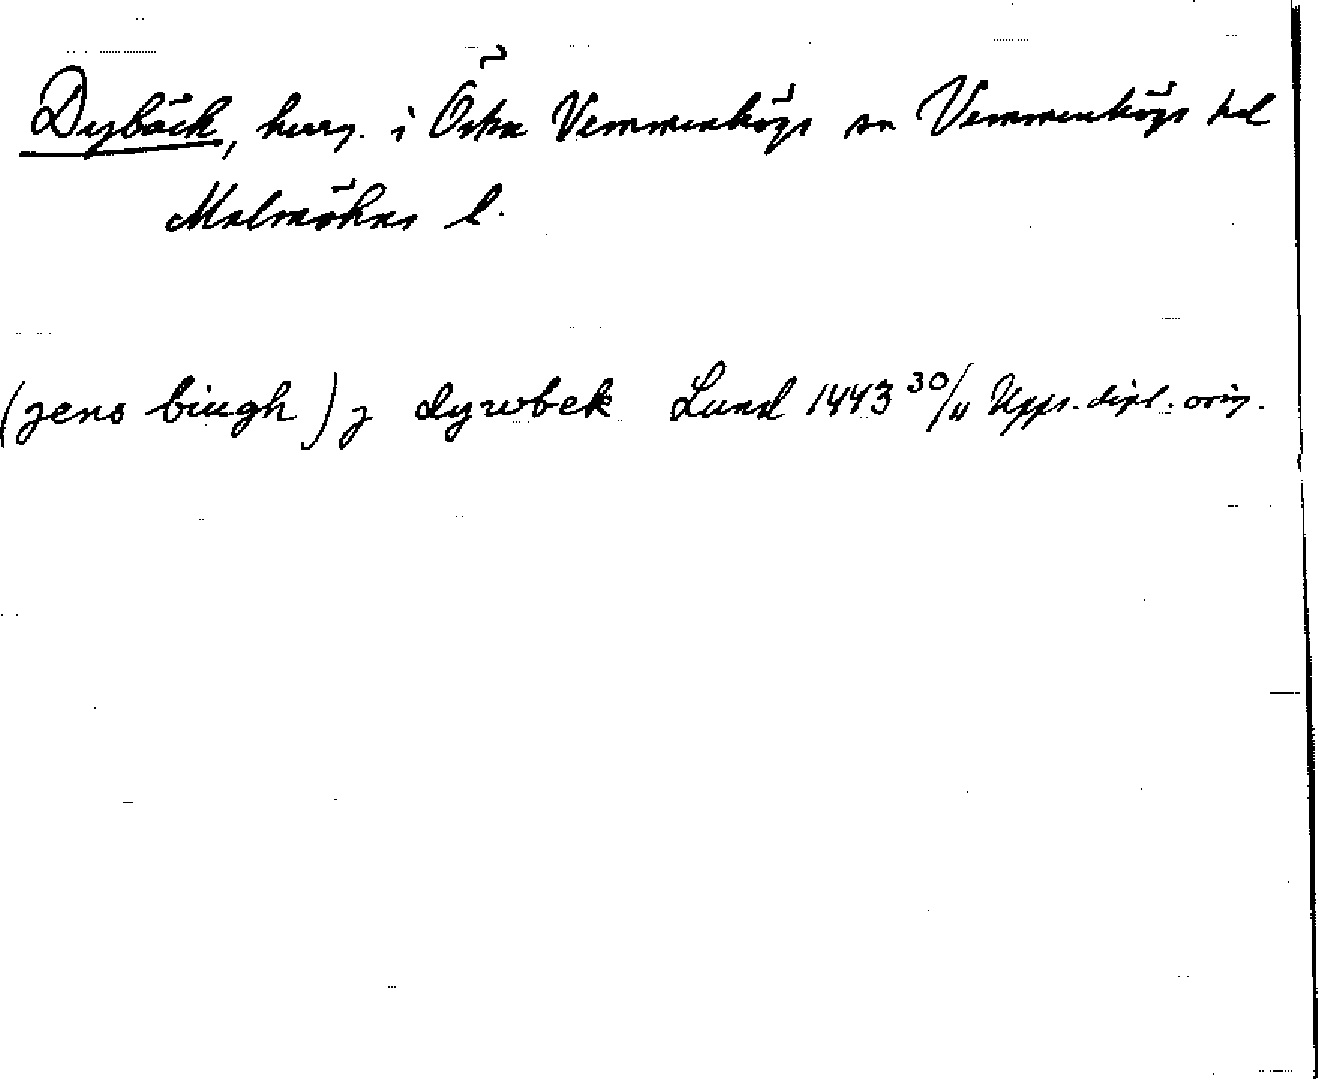 Dybäck, herrg. i Östra Vemmenhögs sn Vemmenhögs hd
Malmöhus l.
(jens biugh) j dyrwbek Lund 1443 30/11 Upps. dipl. orig.